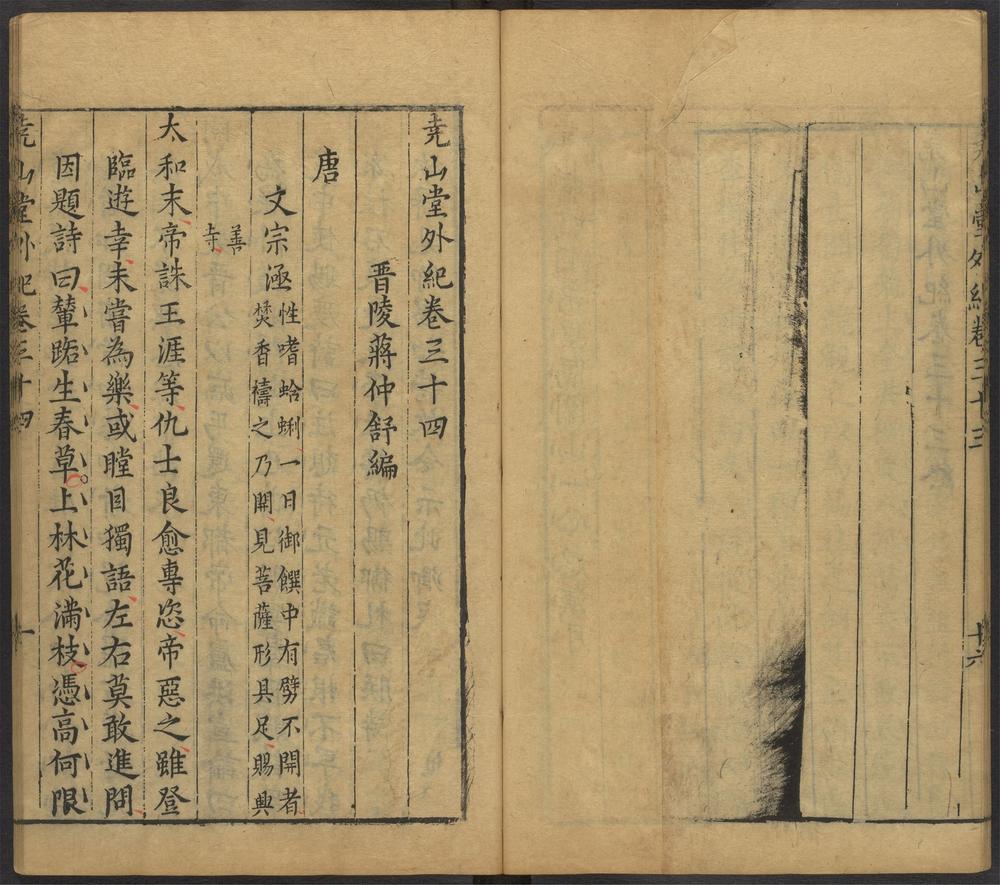 堯山堂外紀卷三十三
十六
堯山堂外紀卷三十四
晋陵蔣仲舒編
唐
文宗涵
性嗜蛤蜊一日御饌中有劈不開者
焚香禱之乃開見菩薩形具足賜興
善
寺
太和末帝誅王涯等仇士良愈專恣帝惡之雖登
臨遊幸未嘗為樂或瞠目獨語左右莫敢進問
因題詩曰輦路生春草上林花滿枝憑高何限
堯山堂外紀卷三十四
一